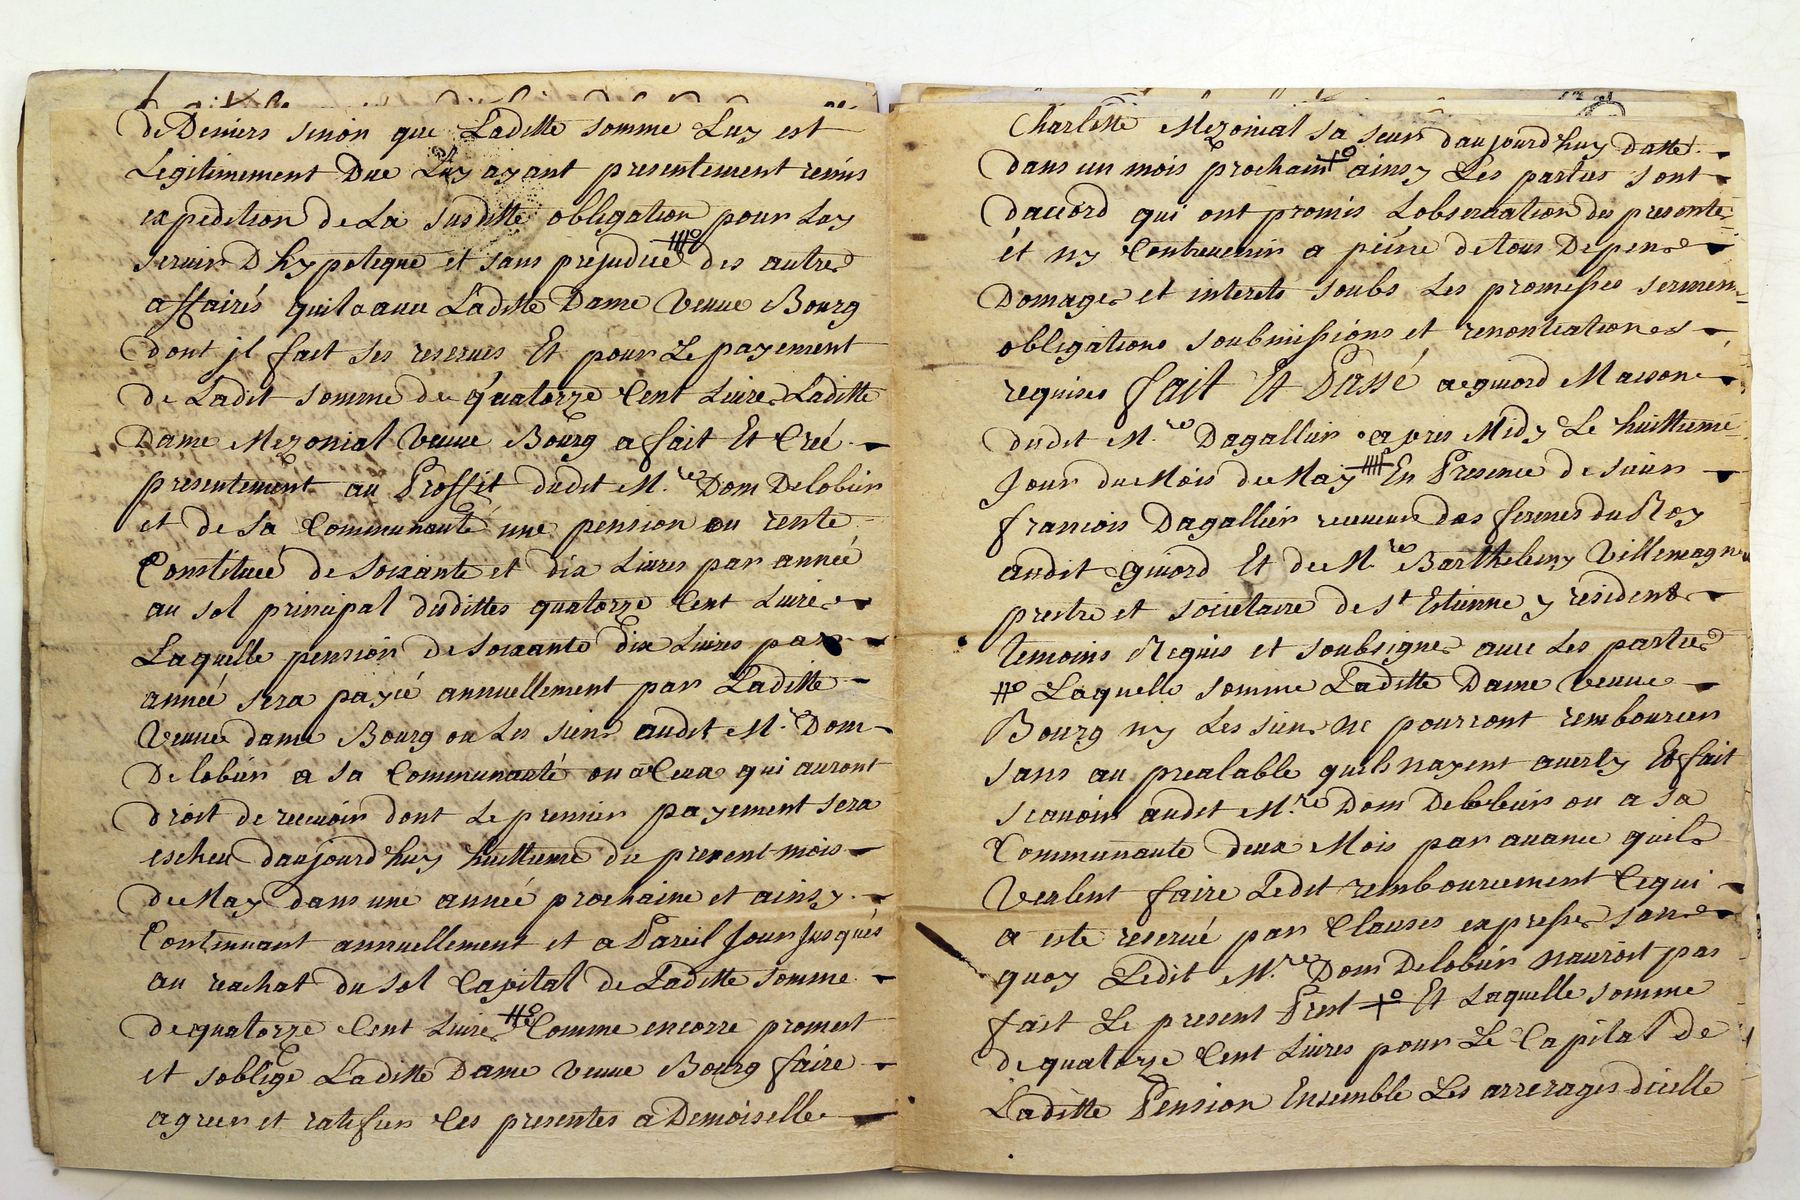 de Deniers sinon que Laditte somme Luy est
Legitimement Due Luy ayant presentement remis
expedition de La susditte obligation pour Luy
seruir D hypoteque et sans prejudice des autres
affairés quil a auec Laditte Dame Veuue Bourg
dont jl fait ses reserues Et pour Le payement
de Ladit somme de quatorze Cent Liures Laditte
Dame Mezonial Veuue Bourg a fait Et Creé
presentement au Proffit dudit M.re Dom Delobier
et de sa Communauté une pension ou rente
Constituée de soixante et dix Liures par année
au sol principal dudittes quatorze Cent Liures
Laquelle pension de soixante dix Liures par
année sera payée annuellement par Laditte
Veuue dame Bourg ou Les siens audit M.r Dom
Delobier a sa Communauté ou a Ceux qui auront
droit de receuoir dont Le premier payement sera
escheu daujourdhuy huittieme du present mois
de May dans une année prochaine et ainsy
Continuant annuellement et a Pareil Jour Jusqués
au rachat du sol Capital de Laditte somme
de quatorze Cent Liures #o Comme encorre promest
et soblige Laditte Dame Veuue Bourg faire
agreer et ratifier Ces presentes a Demoiselle
Charlotte Mezonial sa seur daujourdhuy Datte
dans un mois prochain +o ainsy Les parties sont
daccord qui ont promis Lobseruation des presente
ét ny Contreuenir a peine de tous Depens
Domages et interets soubs Les promesses sermens
obligations soubmissions et renontiations
requises fait Et Passé a eguiord Maison
dudit M.re Dagallier apres Midy Le huittieme
Jour du Mois de May # En Presence de sieur
francois Dagallier receueur des fermes du Roy
audit eguiord Et de M.re Barthelemy Villemagne
prestre et societaire de St Estienne y residents
temoins Requis et soubsignes auec Les parties
#o Laquelle somme Laditte Dame Veuue
Bourg ny Les siens ne pourront rembourcer
sans au prealable quils nayent auerty Et fait
scauoir audit M.re Dom Delobier ou a sa
Communaute deux Mois par auance quils
Veulent faire Ledit rembourcement Cequi
a esté reserué par Clauses expresses sans
quoy Ledit M.re Dom Delobier nauroit pas
fait Le present Prest +o Et Laquelle somme
de quatorze Cent Liures pour Le Capital de
Laditte Pension Ensemble Les arrerages dicelle